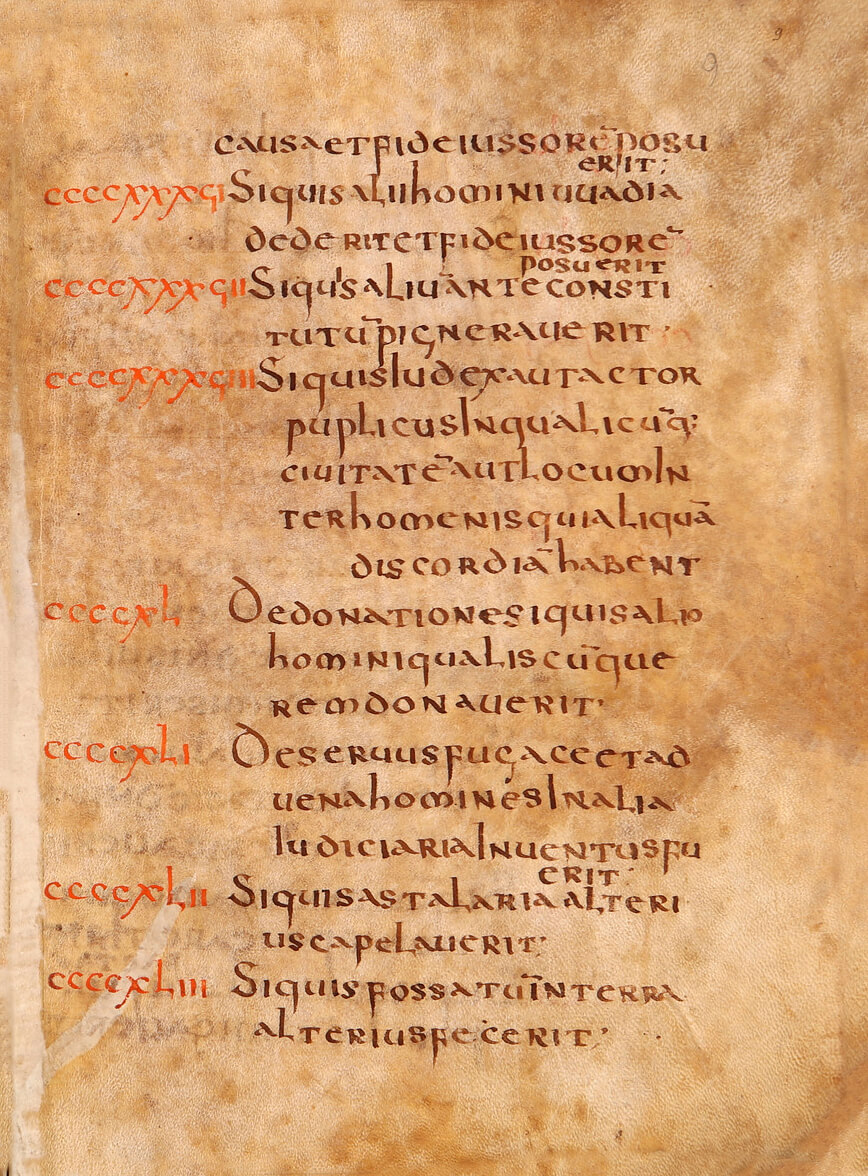 9
9
causa et fideiussorē posu
erit;
ccccxxxvi Si quis alii homini uuadia
dederit et fideiussorē
posuerit
ccccxxxvii Si quis aliū ante consti
tutū pigneraverit.
ccccxxxviii Si quis iudex aut actor
puplicus In qualicūq;
ciuitatē aut locum In
ter homenis qui aliquā
discordiā habent
ccccxl De donatione si quis alio
homini qualiscūque
rem donauerit.
ccccxli De seruus fugacce et ad
uena homines In alia
Iudiciaria Inuentus fu
erit.
ccccxlii Si quis astalaria alteri
us capelauerit;
ccccxliii Si quis fossatū in terra
alterius fecerit.